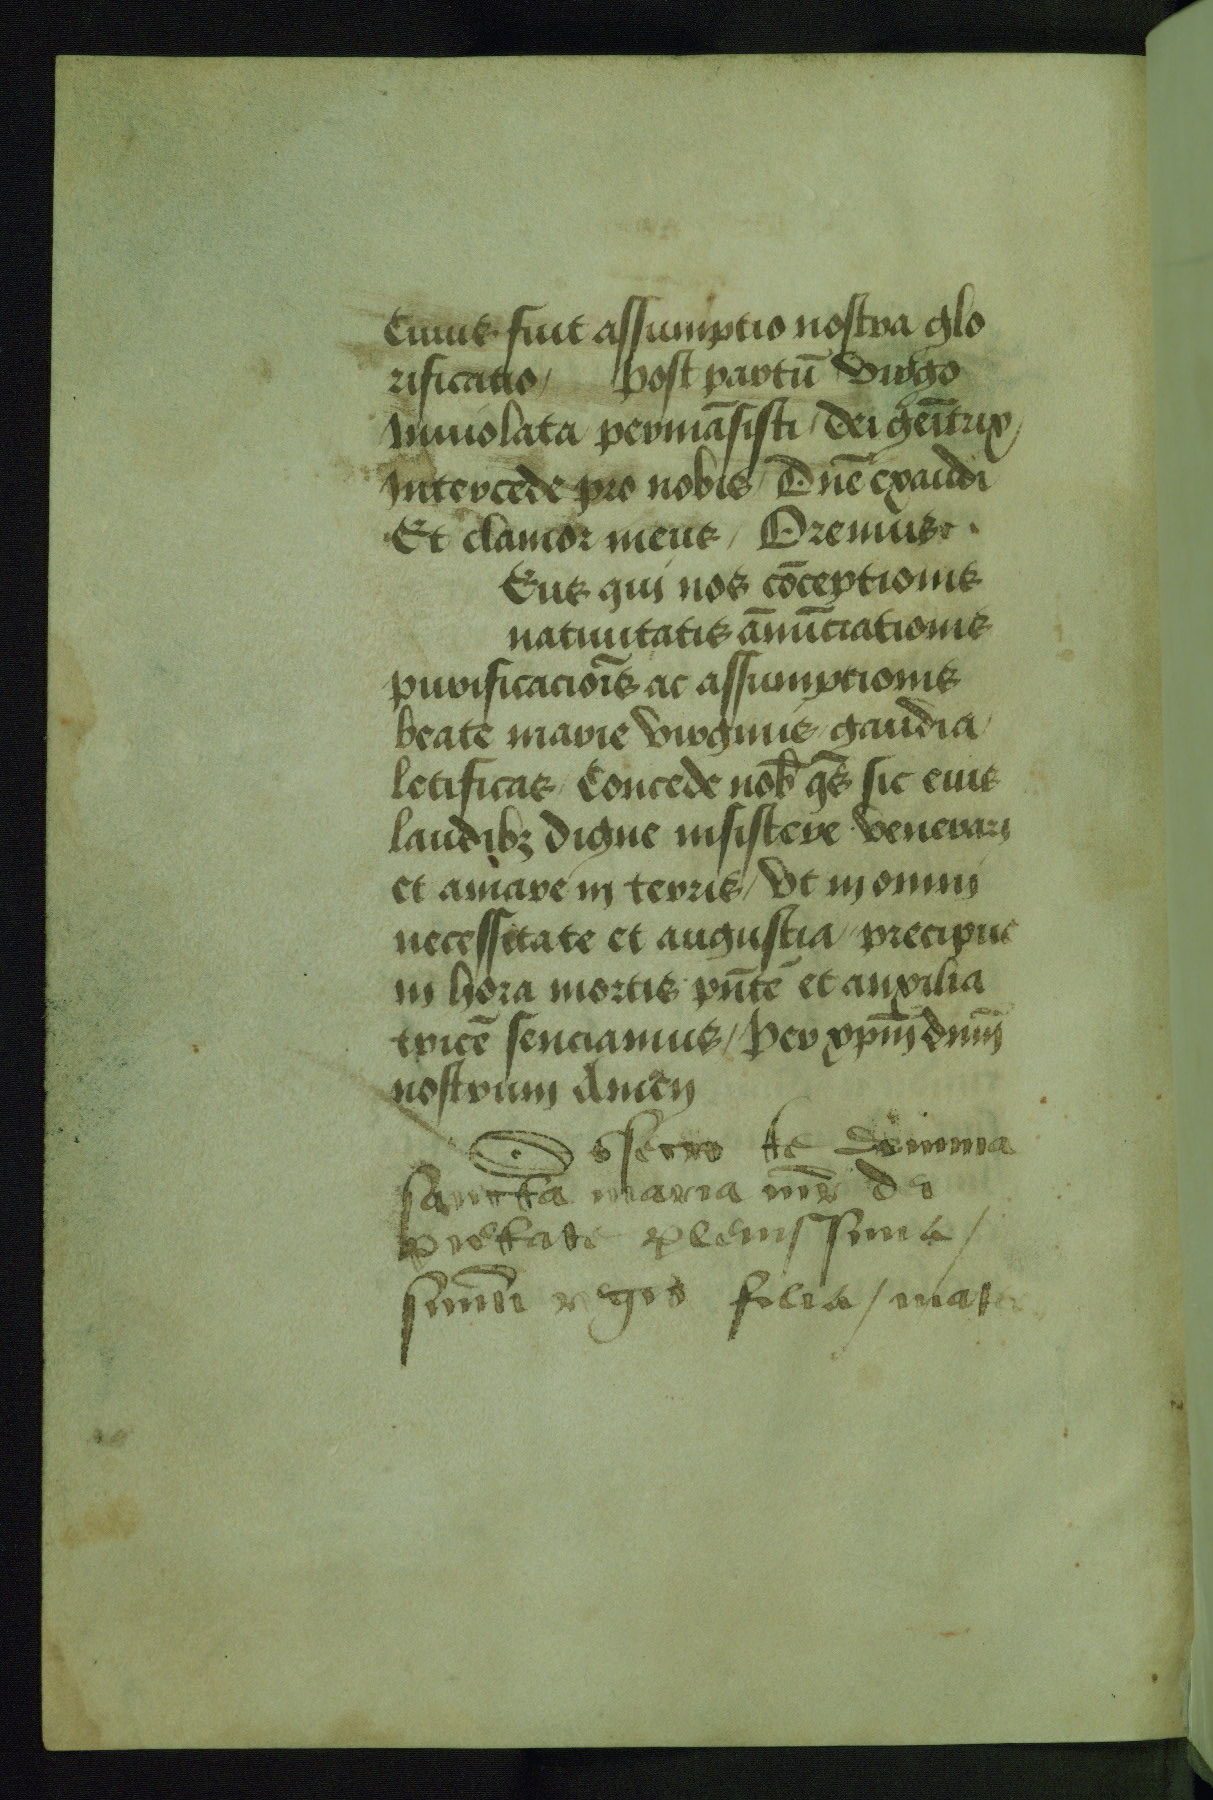 Cuius fuit assumptio nostra glo
rificatio / Post partū virgo
Inuiolata permāsisti / dei geītrix /
Intercede pro nobis / Dnē exaudi
Et clamor meus / Oremus
Eus qui nos cōceptionis
natiuitatis ānūciationis
purificacioīs ac assumptionis
beate marie virginis gaudia /
letificas / Concede nob̄ qs̄ sic eius
laudibꝫ digne insistere venerari
et amare in terris / Vt in omni
necessitate et angustia / precipue
in hora mortis pn̄tē et auxilia
tricē senciamus / Per xpm̄ dnm̄
nostrum Amen
O bsecro te domina
sancta maria mr̄ dei
pietate plenissima /
filia / mater